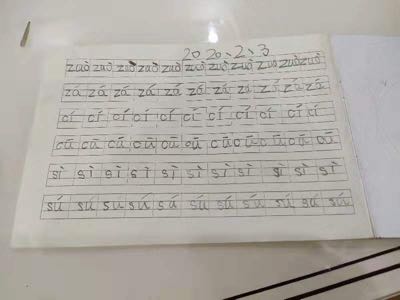 2020、2、3
zuò zuò zuò zuò zuò zuò zuò zuò zuò zuò zuò
zá zá zá zá zá zá zá zá zá zá zá
cí cí cí cí cí cí cí cí cí cí cí
cū cū cū cū cū cū cū cū cū cū cū
sì sì sì sì sì sì sì sì sì sì sì
sú sú sú sú sú sú sú sú sú sú sú